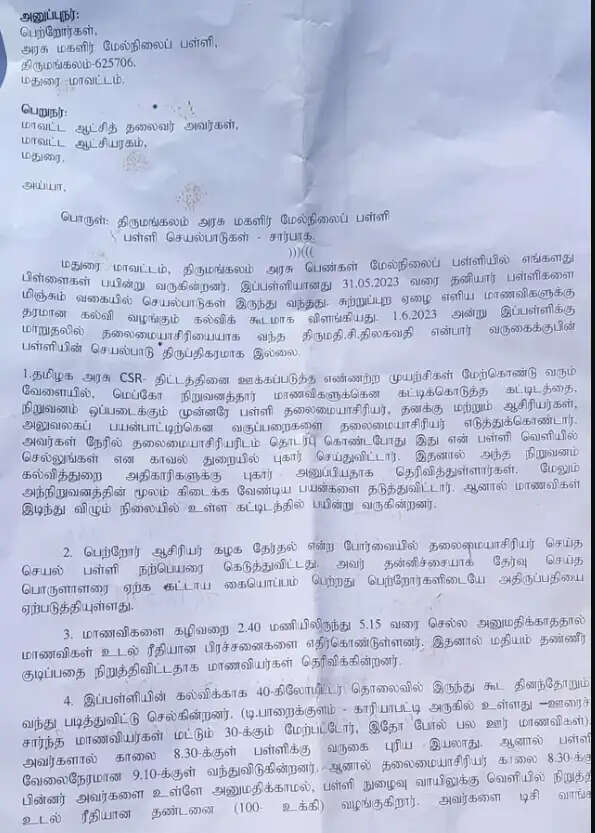 அனுப்புநர்:
பெற்றோர்கள்,
அரசு மகளிர் மேல்நிலைப் பள்ளி,
திருமங்கலம்-625706.
மதுரை மாவட்டம்.
பெறுநர்:
மாவட்ட ஆட்சித் தலைவர் அவர்கள்,
மாவட்ட ஆட்சியரகம்,
மதுரை.
அய்யா,
பொருள்: திருமங்கலம் அரசு மகளிர் மேல்நிலைப் பள்ளி
பள்ளி செயல்பாடுகள் - சார்பாக.
)))(((
மதுரை மாவட்டம், திருமங்கலம் அரசு பெண்கள் மேல்நிலைப் பள்ளியில் எங்களது
பிள்ளைகள் பயின்று வருகின்றனர். இப்பள்ளியானது 31.05.2023 வரை தனியார் பள்ளிகளை
மிஞ்சும் வகையில் செயல்பாடுகள் இருந்து வந்தது. சுற்றுப்புற ஏழை எளிய மாணவிகளுக்கு
தரமான கல்வி வழங்கும் கல்விக் கூடமாக விளங்கியது. 1.6.2023 அன்று இப்பள்ளிக்கு
மாறுதலில் தலைமையாசிரியையாக வந்த திருமதி.சி.திலகவதி என்பார் வருகைக்குபின்
பள்ளியின் செயல்பாடு திருப்திகரமாக இல்லை.
1.தமிழக அரசு CSR- திட்டத்தினை ஊக்கப்படுத்த எண்ணற்ற முயற்சிகள் மேற்கொண்டு வரும்
வேளையில், மெப்கோ நிறுவனத்தார் மாணவிகளுக்கென கட்டிக்கொடுத்த கட்டிடத்தை,
நிறுவனம் ஒப்படைக்கும் முன்னரே பள்ளி தலைமையாசிரியர், தனக்கு மற்றும் ஆசிரியர்கள்,
அலுவலகப் பயன்பாட்டிற்கென வகுப்பறைகளை தலைமையாசிரியர் எடுத்துக்கொண்டார்.
அவர்கள் நேரில் தலைமையாசிரியரிடம் தொடர்பு கொண்டபோது இது என் பள்ளி வெளியில்
செல்லுங்கள் என காவல் துறையில் புகார் செய்துவிட்டார். இதனால் அந்த நிறுவனம்
கல்வித்துறை அதிகாரிகளுக்கு புகார் அனுப்பியதாக தெரிவித்துள்ளார்கள். மேலும்
அந்நிறுவனத்தின் மூலம் கிடைக்க வேண்டிய பயன்களை தடுத்துவிட்டார். ஆனால் மாணவிகள்
இடிந்து விழும் நிலையில் உள்ள கட்டிடத்தில் பயின்று வருகின்றனர்.
2. பெற்றோர் ஆசிரியர் கழக தேர்தல் என்ற போர்வையில் தலைமையாசிரியர் செய்த
செயல் பள்ளி நற்பெயரை கெடுத்துவிட்டது. அவர் தன்னிச்சையாக தேர்வு செய்த
பொருளாளரை ஏற்க கட்டாய கையொப்பம் பெற்றது பெற்றோர்களிடையே அதிருப்தியை
ஏற்படுத்தியுள்ளது.
3. மாணவிகளை கழிவறை 2.40 மணியிலிருந்து 5.15 வரை செல்ல அனுமதிக்காததால்
மாணவிகள் உடல் ரீதியான பிரச்சனைகளை எதிர்கொண்டுள்ளனர். இதனால் மதியம் தண்ணீர்
குடிப்பதை நிறுத்திவிட்டதாக மாணவியர்கள் தெரிவிக்கின்றனர்.
4. இப்பள்ளியின் கல்விக்காக 40-கிலோமீட்டர் தொலைவில் இருந்து கூட தினந்தோறும்
வந்து படித்துவிட்டு செல்கின்றனர். (டி.பாறைக்குளம் - காரியாபட்டி அருகில் உள்ளது –ஊரைச்
சார்ந்த மாணவியர்கள் மட்டும் 30-க்கும் மேற்பட்டோர், இதோ போல் பல ஊர் மாணவிகள்)
அவர்களால் காலை 8.30-க்குள் பள்ளிக்கு வருகை புரிய இயலாது. ஆனால் பள்ளி
வேலைநேரமான 9.10-க்குள் வந்துவிடுகின்றனர். ஆனால் தலைமையாசிரியர் காலை 8.30-க்கு
பின்னர் அவர்களை உள்ளே அனுமதிக்காமல், பள்ளி நுழைவு வாயிலுக்கு வெளியில் நிறுத்தி
உடல் ரீதியான தண்டனை (100- உக்கி) வழங்குகிறார். அவர்களை டிசி வாங்க